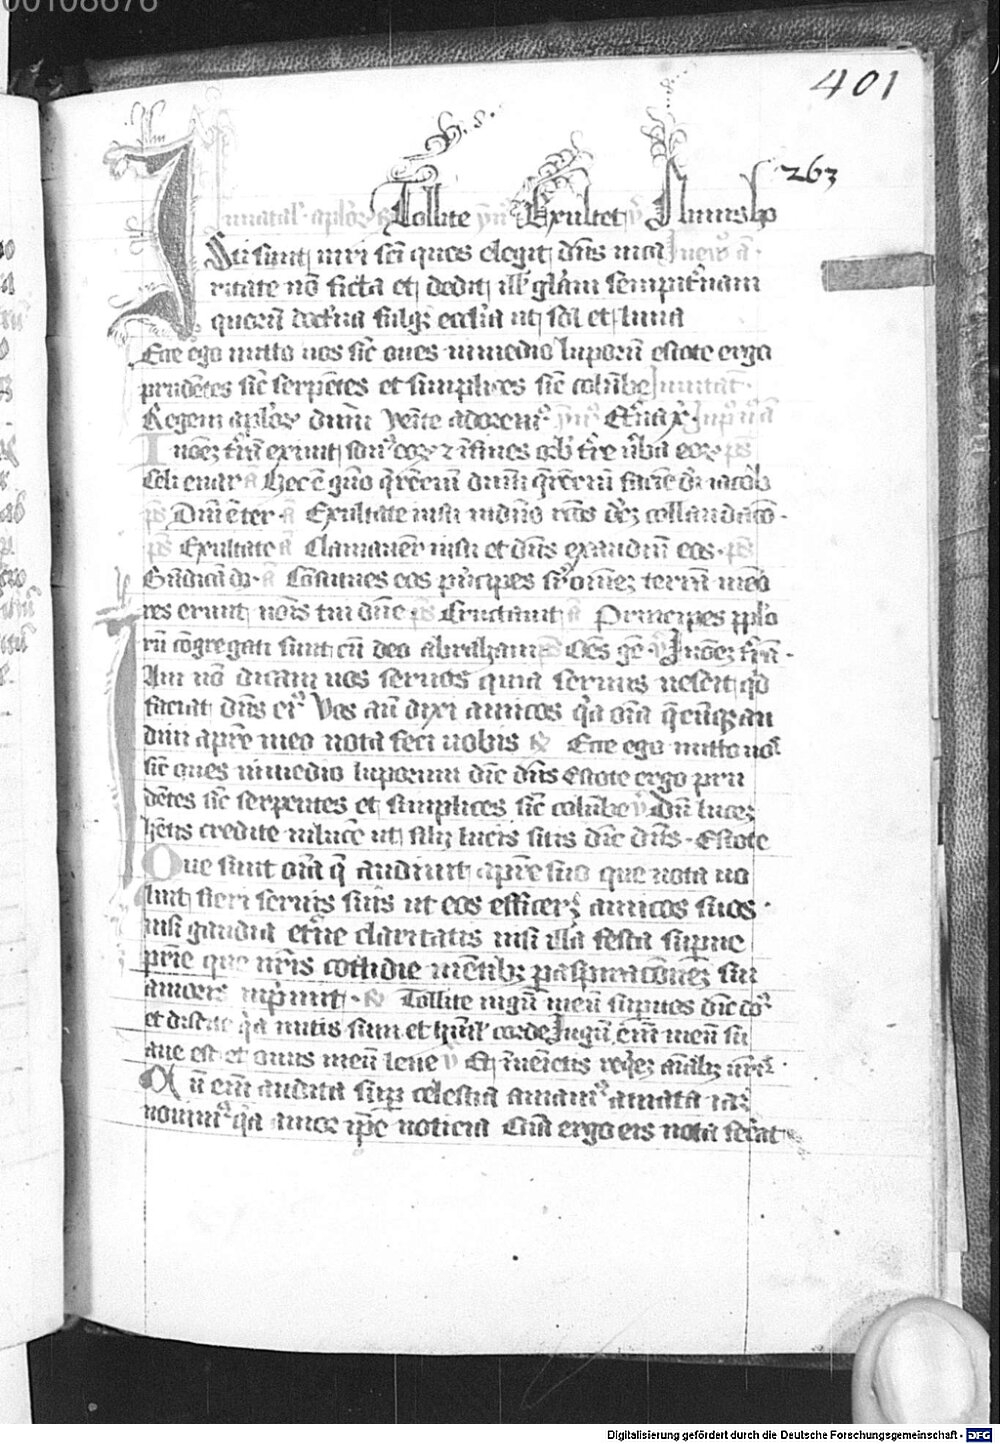 00108676
401
263
In natal' aplo℞ ℞ Tollite ym̄ Exultet ℣ Nimis ho
Isti sunt viri sc̄i quos elegit dn̄s in ca
ritate nō ficta et dedit ill' glāam sempit'nam
quorū doct'na fulg; eccl'ia ut sol et luna
Ecce ego mitto vos sic̄ oves in medio luporū estote ergo
prudētes sic̄ serpētes et simplices sic̄ colūbe Invitat'
Regem aplo℞ dnm̄ venite adorem' ym' Et'na x̄
In oēz t'rā exivit son' eo℞ z ī fines orb' t're v'ba eo℞ ps̄
Celi enar a Hec ē gn̄o q̄rēciū dnm̄ q̄rēciū faciē dī iacob
ps̄ Dnī ē ter a Exultate iusti in dn̄o rc̄os dez collaudaco
ps̄ Exultate a Clamaver̄ iusti et dn̄s exaudivit eos ps̄
Bn̄dicā dn̄ a Cōstitues eos p'ncipes sup omnez terrā meo
res erunt nois tui dn̄e ps̄ Eructavit a Principes pplo
rū cōgregati sunt cū deo abraham ps̄ Oēs gē ℣ In oēz t'rā
Iam nō dicam vos servos quia servus nescit qd
faciat dn̄s ei' Vos aū dixi amicos q̄a oīa q̄cūq; au
divi a pr̄e meo nota feci vobis ℞ Ecce ego mitto vos
sic̄ oves in medio luporum dic̄ dn̄s Estote ergo pru
dētes sic̄ serpentes et simplices sic̄ colūbe ℣ Dū lucez
hētis credite in lucē ut filij lucis sitis dic̄ dn̄s Estote
Que sunt oīa q̄ audivit a pr̄e suo que nota vo
luit fieri servis suis ut eos efficer; amicos suos
nisi gaudia et'ne claritatis nisi illa festa sup̄ne
pr̄ie que nr̄is cottidie mētib; p aspiracōnez sui
amoris inp'mit ℞ Tollite iugū meū sup vos dic̄ do'
et discite q̄a mitis sum et hūil' corde Iugū em̄ meū su
ave est et onus meū leve ℣ Et invēietis reqēz aīab; vr̄is
Dū em̄ audita sup celestia amam' amata iaz
novim' q̄a amor ip̄e noticia Cūcta ergo eis nota fecat
Digitalisierung gefördert durch die Deutsche Forschungsgemeinschaft - DFG